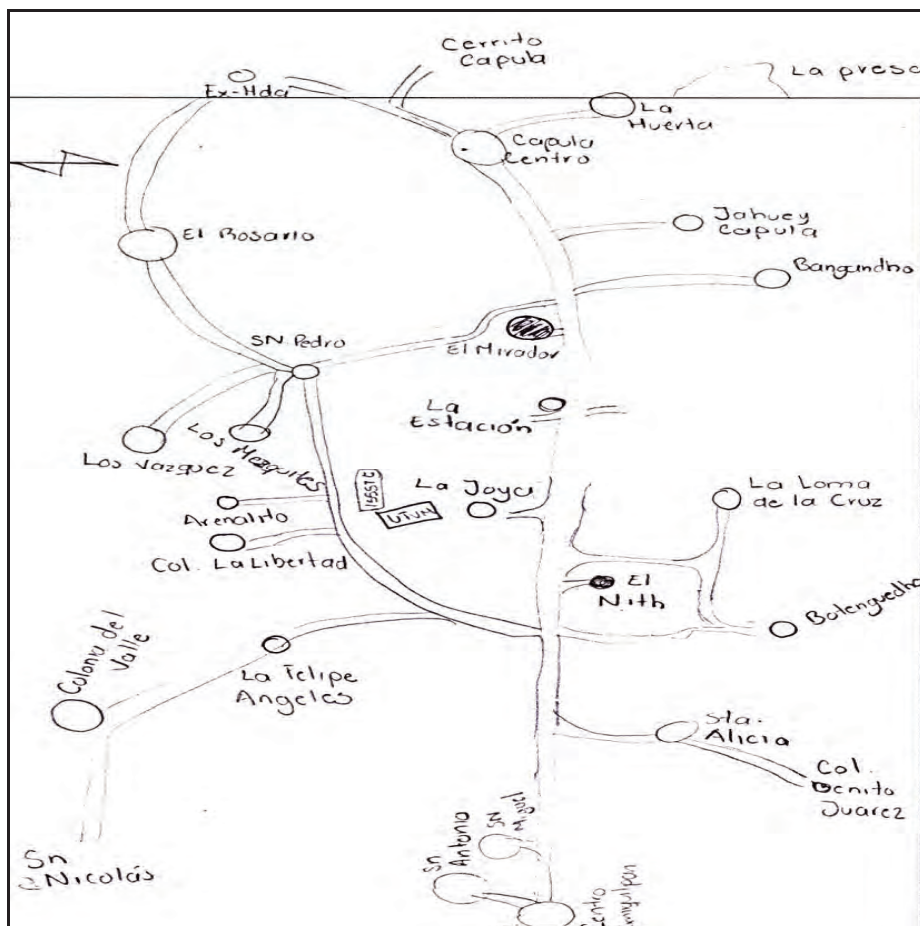 Cerrito
Capula
La presa
Ex-Hda
La
Huerta
Capula
Centro
Jahuey
Capula
El Rosario
Bangandho
SN. Pedro
El Mirador
La
Estación
Los Vazquez
Los Mezquites
ISSSTE
UTVM
La Joya
La Loma
de la Cruz
Arenalito
Col. La Libertad
El
Nith
Botenguedho
Colonia del
Valle
La Felipe
Angeles
Sta.
Alicia
Col.
Benito
Juarez
Sn
Nicolás
Sn
Antonio
SN
Miguel
Centro